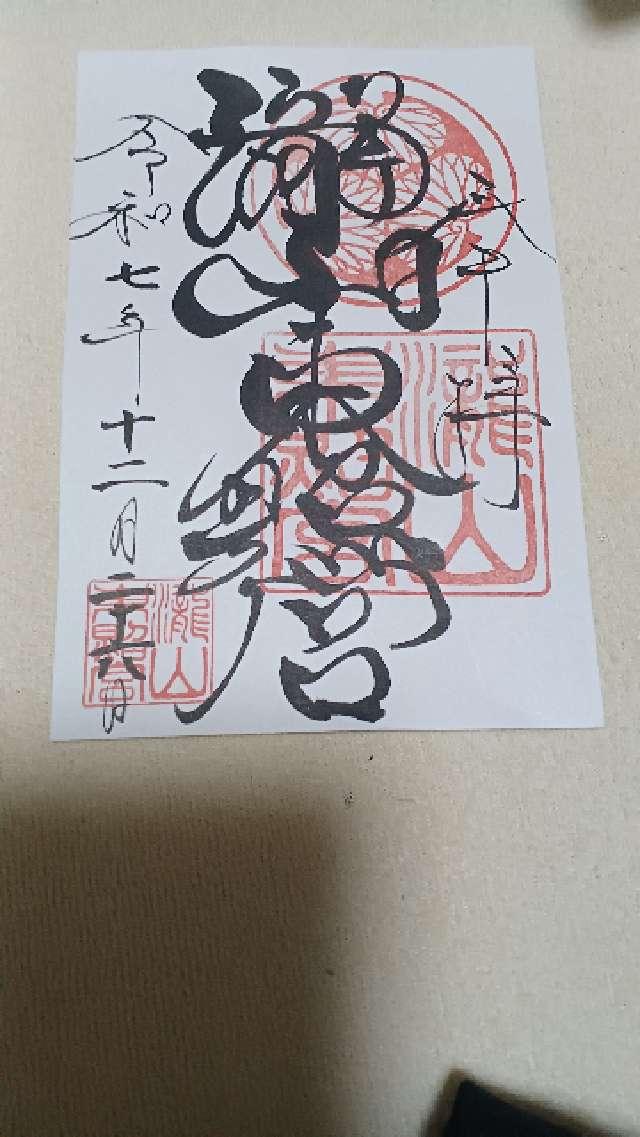 奉拝
瀧山東照宮
令和七年十二月二十六日
瀧山
東照宮
瀧山
東照宮